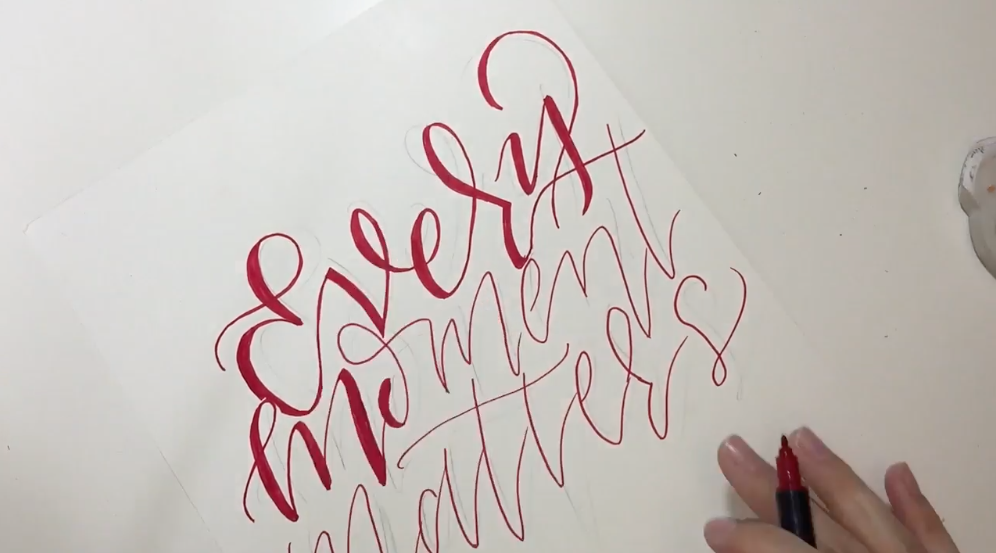 Every
moment
matters